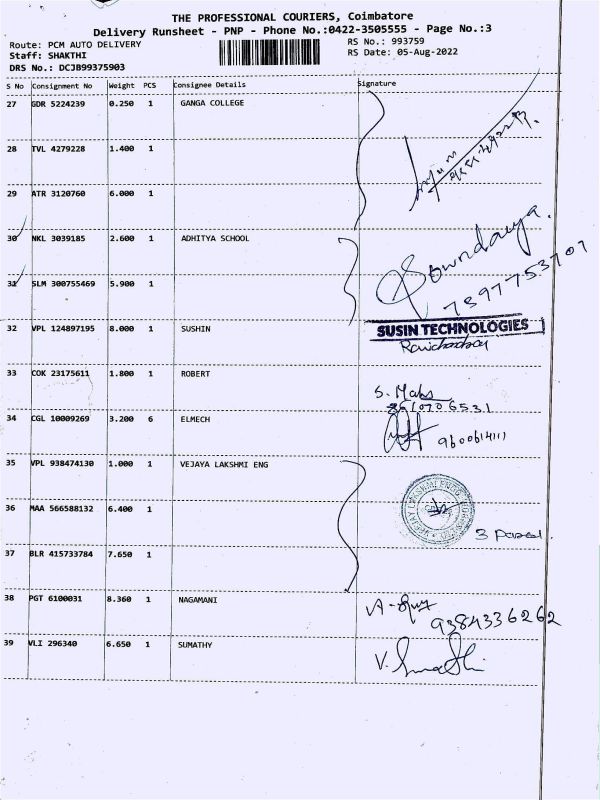 THE PROFESSIONAL COURIERS, Coimbatore
Delivery Runsheet - PNP - Phone No.:0422-3505555 - Page No.:3
Route: PCM AUTO DELIVERY
RS No.: 993759
Staff: SHAKTHI
RS Date: 05-Aug-2022
DRS No.: DCJB99375903
S No Consignment No Weight PCS Consignee Details Signature
27 GDR 5224239 0.250 1 GANGA COLLEGE
28 TVL 4279228 1.400 1
29 ATR 3120760 6.000 1
30 NKL 3039185 2.600 1 ADHITYA SCHOOL
Sowndarya.
7397753707
31 SLM 300755469 5.900 1
SUSIN TECHNOLOGIES
32 VPL 124897195 8.000 1 SUSHIN
33 COK 23175611 1.800 1 ROBERT
S. Mahs
8610706531
34 CGL 10009269 3.200 6 ELMECH
9600614111
35 VPL 938474130 1.000 1 VEJAYA LAKSHMI ENG
36 MAA 566588132 6.400 1
3 parcel
37 BLR 415733784 7.650 1
38 PGT 6100031 8.360 1 NAGAMANI
9384336262
39 VLI 296340 6.650 1 SUMATHY
V. Sumathi